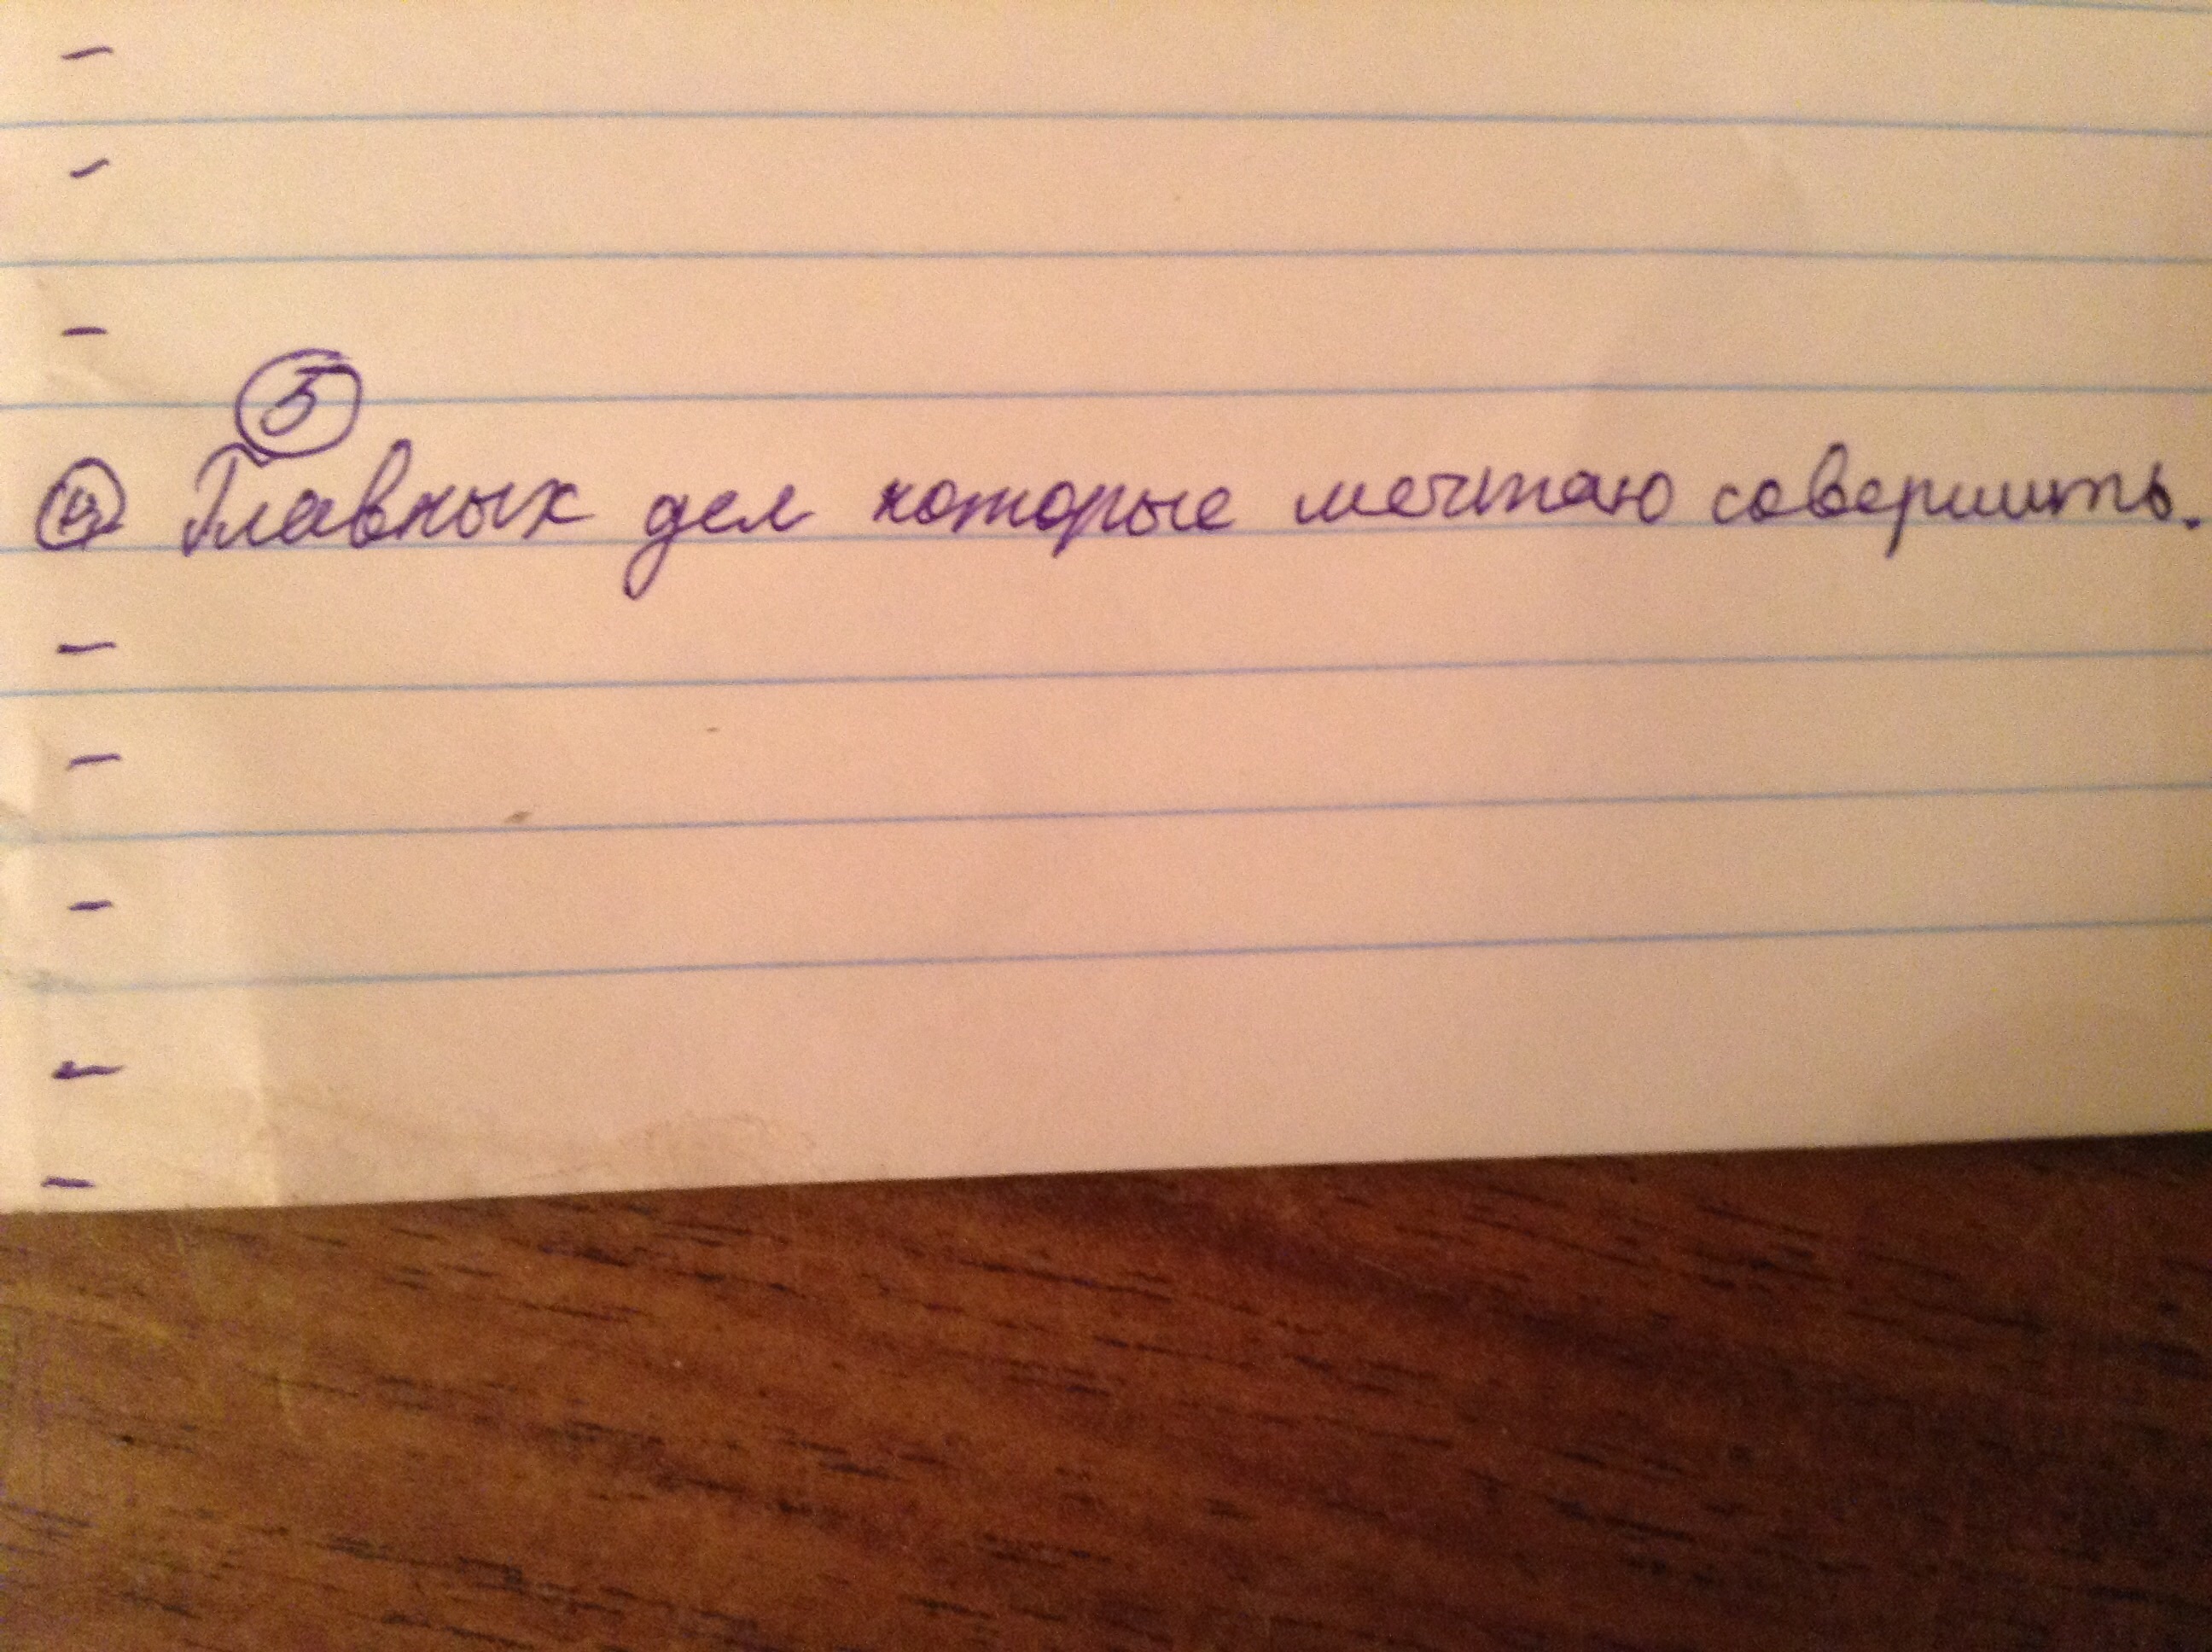 -
-
-
5
Главных дел которые мечтаю совершить.
-
-
-
-
-